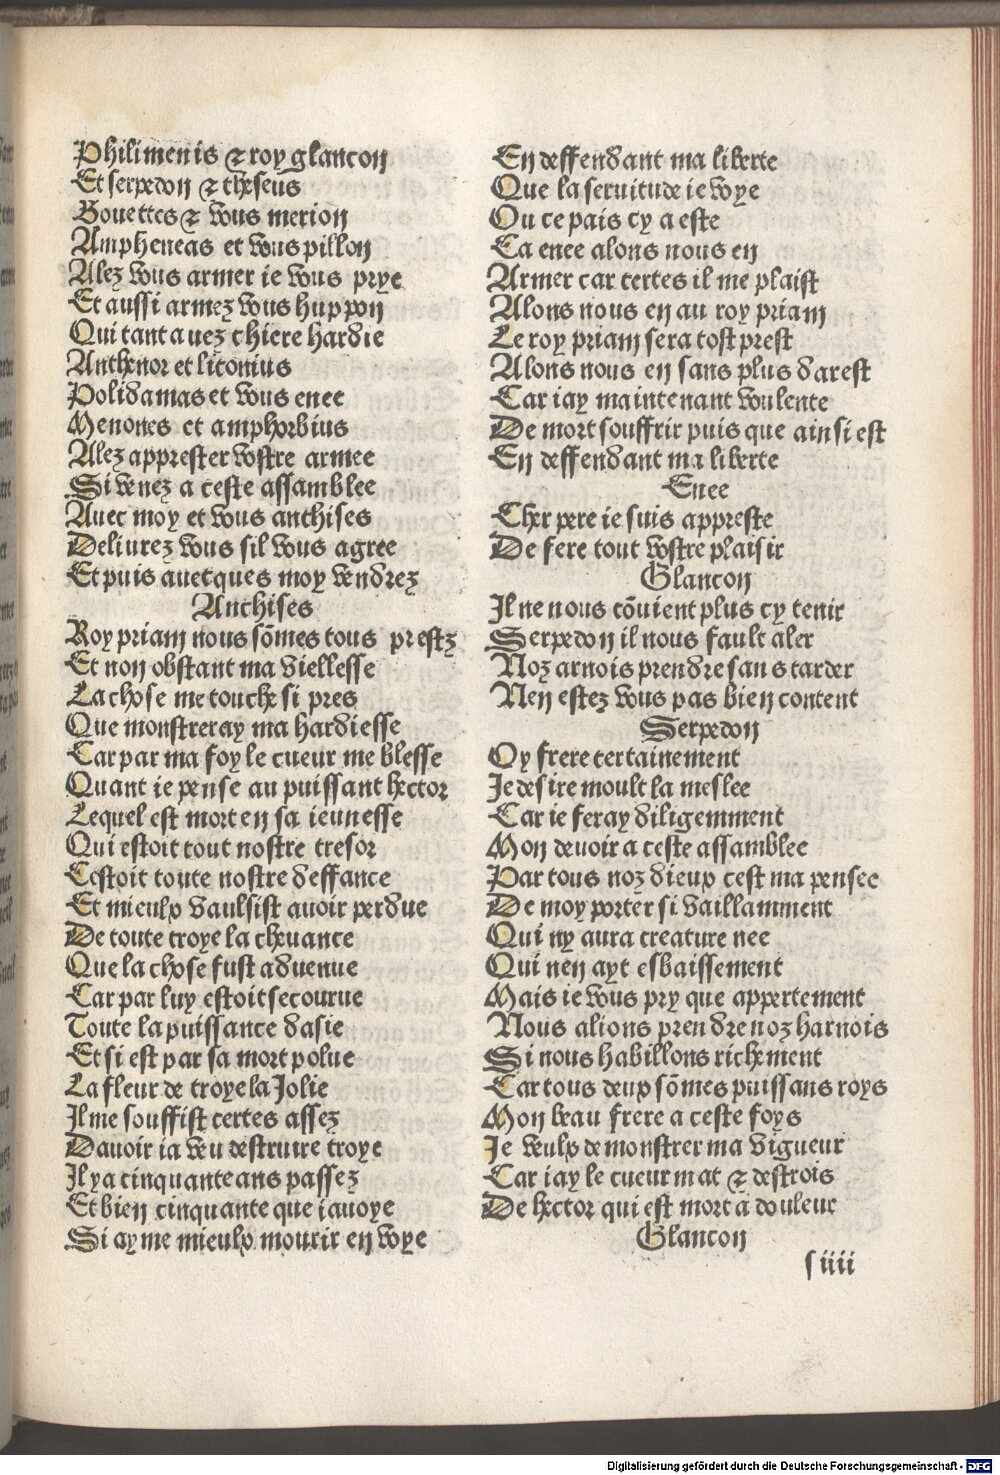 Philimenis ⁊ roy glancon
Et serpedon ⁊ theseus
Bouettes ⁊ vous merion
Ampheneas et vous pillon
Alez vous armer ie vous prye
Et aussi armez vous huppon
Qui tant auez chiere hardie
Anthenor et litonius
Polidamas et vous enee
Menones et amphorbius
Alez apprester vostre armee
Si venez a ceste assamblee
Auec moy et vous anthises
Deliurez vous sil vous agree
Et puis auecques moy vendrez
Anchises
Roy priam nous sõmes tous prestz
Et non obstant ma viellesse
La chose me touche si pres
Que monstreray ma hardiesse
Car par ma foy le cueur me blesse
Quant ie pense au puissant hector
Lequel est mort en sa ieunesse
Qui estoit tout nostre tresor
Cestoit toute nostre deffance
Et mieulx vaulsist auoir perdue
De toute troye la cheuance
Que la chose fust aduenue
Car par luy estoit secourue
Toute la puissance dasie
Et si est par sa mort polue
La fleur de troye la Jolie
Il me souffist certes assez
Dauoir ia veu destruire troye
Il ya cinquante ans passez
Et bien cinquante que iauoye
Si ayme mieulx mourir en voye
En deffendant ma liberte
Que la seruitude ie voye
Ou ce pais cy a este
Ca enee alons nous en
Armer car certes il me plaist
Alons nous en au roy priam
Le roy priam sera tost prest
Alons nous en sans plus darest
Car iay maintenant voulente
De mort souffrir puis que ainsi est
En deffendant ma liberte
Enee
Cher pere ie suis appreste
De fere tout vostre plaisir
Glancon
Il ne nous cõuient plus cy tenir
Serpedon il nous fault aler
Noz arnois prendre sans tarder
Nen estez vous pas bien content
Serpedon
Oy frere certainement
Je desire moult la meslee
Car ie feray diligemment
Mon deuoir a ceste assamblee
Par tous noz dieux cest ma pensee
De moy porter si vaillamment
Qui ny aura creature nee
Qui nen ayt esbaissement
Mais ie vous pry que appertement
Nous alions prendre noz harnois
Si nous habillons richement
Car tous deux sõmes puissans roys
Mon beau frere a ceste foys
Je veulx demonstrer ma vigueur
Car iay le cueur mat ⁊ destrois
De hector qui est mort a douleur
Glancon
s iiii
Digitalisierung gefördert durch die Deutsche Forschungsgemeinschaft - DFG